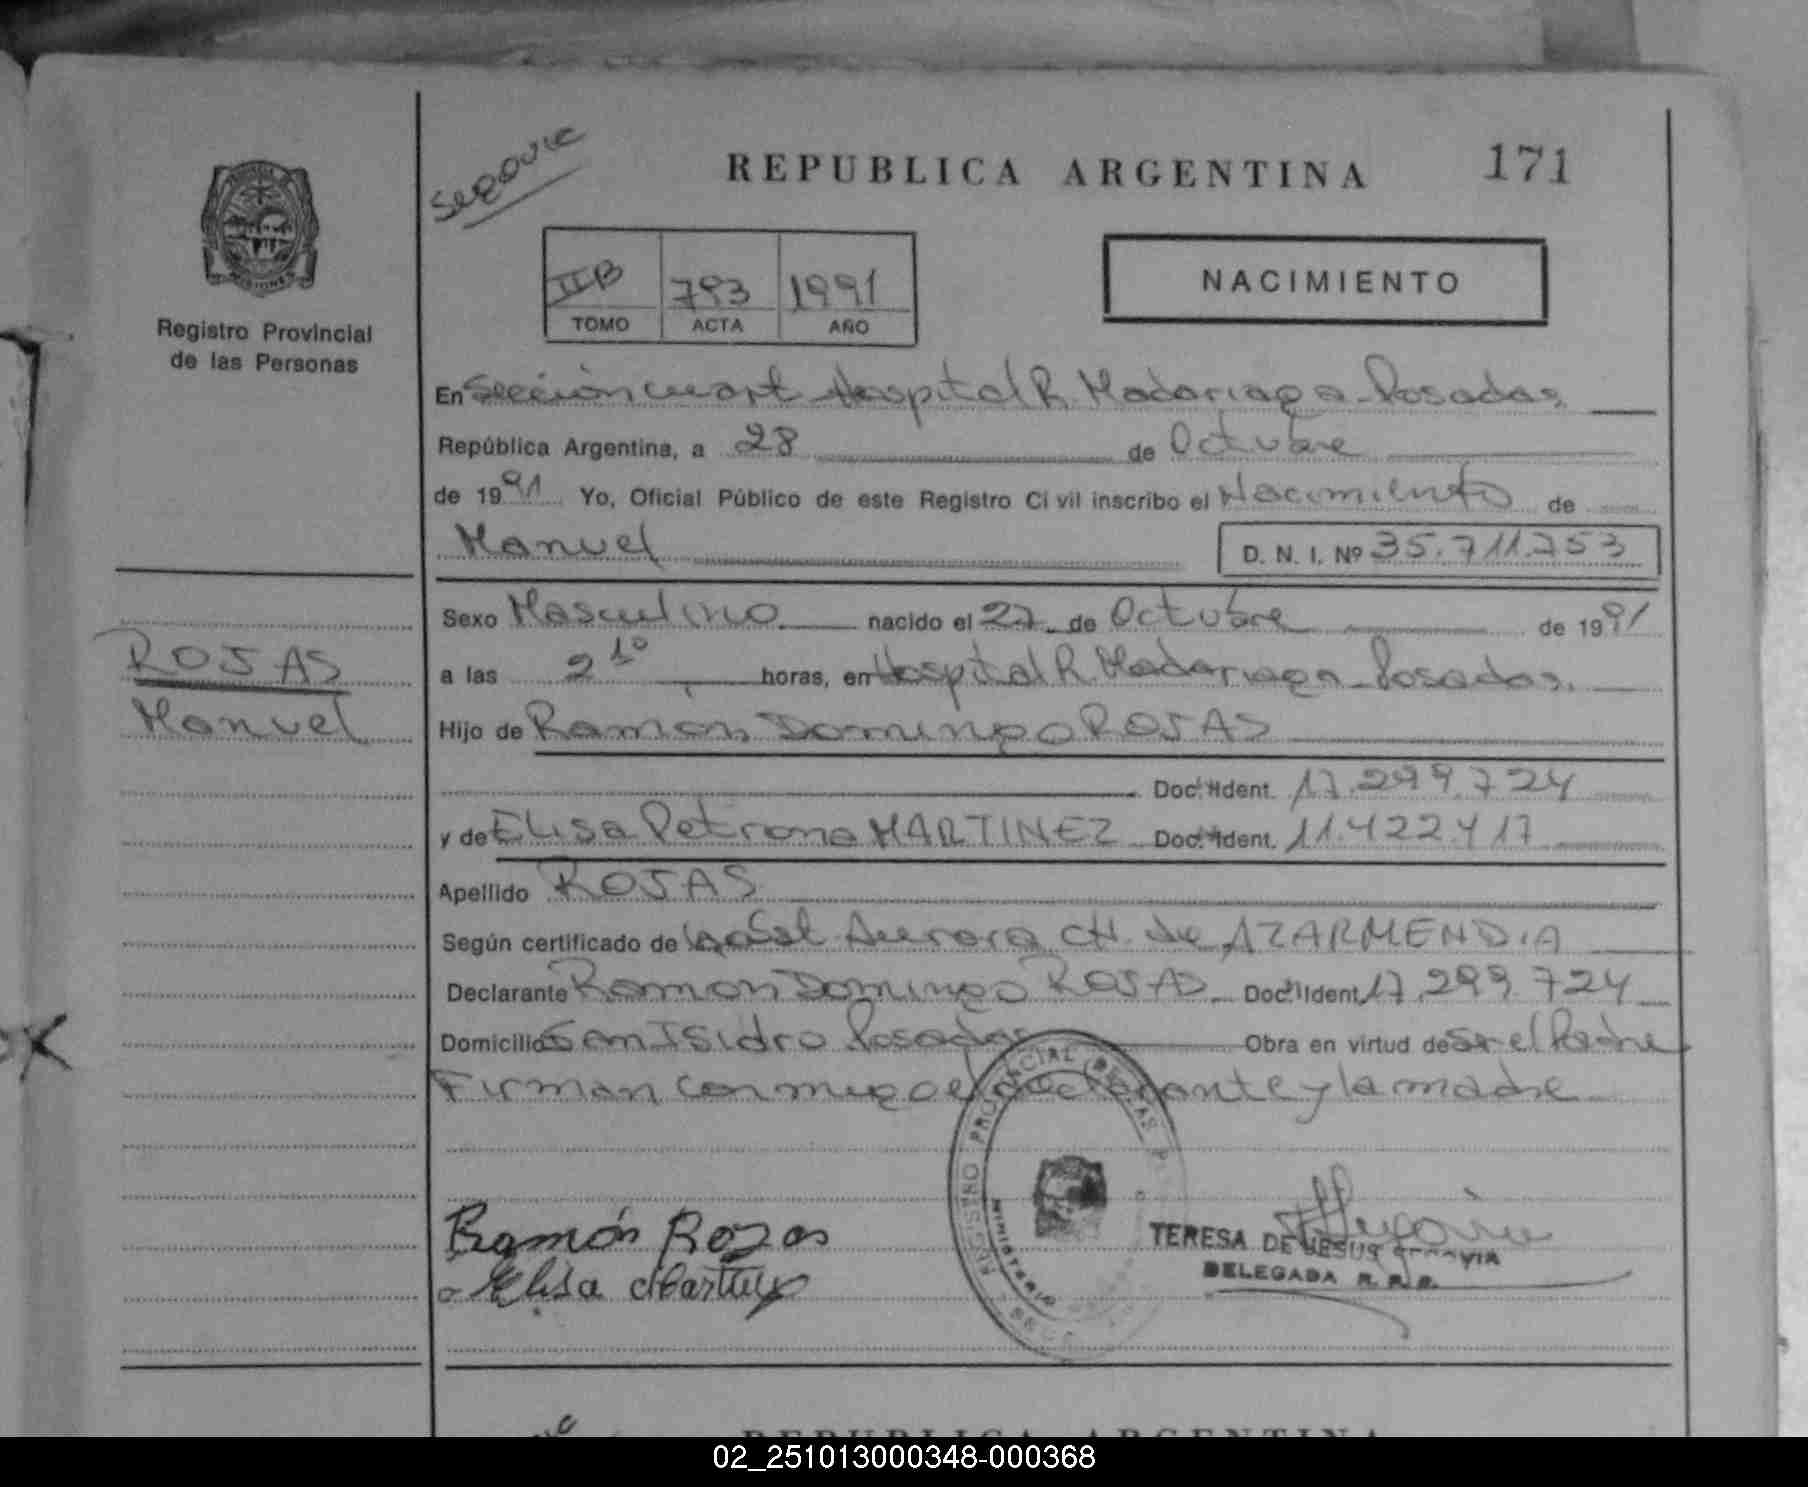 Segovia
REPUBLICA ARGENTINA
171
IIB 793 1991
TOMO ACTA AÑO
NACIMIENTO
MISIONES
Registro Provincial
de las Personas
En Sección cuart Hospital R. Madariaga - Posadas
República Argentina, a 28 de Octubre
de 1991 Yo, Oficial Público de este Registro Civil inscribo el Nacimiento de
Manuel
D. N. I. Nº 35.711.753
Sexo Masculino nacido el 27 de Octubre de 1991
a las 2 10 horas, en Hospital R. Madariaga - Posadas.
ROJAS
Manuel
Hijo de Ramón Domingo ROJAS
Doc. Ident. 17.299.724
y de Elisa Petrona MARTINEZ Doc. Ident. 11.422.417
Apellido ROJAS
Según certificado de Isabel Aurora CH. de AZARMENDIA
Declarante Ramón Domingo ROJAS Doc. Ident. 17.299.724
Domicilio San Isidro Posadas Obra en virtud de Ser el Padre
Firman conmigo el declarante y la madre
REGISTRO PROVINCIAL DE LAS
MINISTERIO
Ramón Rojas
Elisa Martinez
TERESA DE JESUS SEGOVIA
DELEGADA R. P. P.
REPUBLICA ARGENTINA
02_251013000348-000368